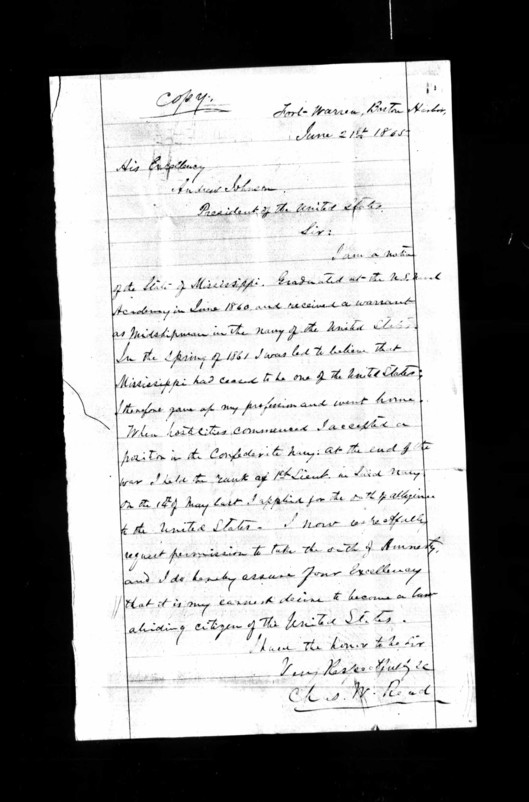 Copy.
Fort Warren, Boston Harbor,
June 21st 1865
His Excellency
Andrew Johnson.
President of the United States.
Sir:
I am a native
of the State of Mississippi. Graduated at the U.S. Naval
Academy in June 1860 and received a warrant
as Midshipman in the Navy of the United States.
In the Spring of 1861 I was led to believe that
Mississippi had ceased to be one of the United States;
I therefore gave up my profession and went home.
When hostilities commenced I accepted a
position in the Confederate Navy: at the end of the
war I held the rank of 1st Lieut. in said Navy.
On the 14th of May last I applied for the oath of allegiance
to the United States. I now respectfully
request permission to take the oath of Amnesty,
and I do hereby assure Your Excellency
that it is my earnest desire to become a law
abiding citizen of the United States.
I have the honor to be Sir
Very Respectfully &c
Chas. W. Read